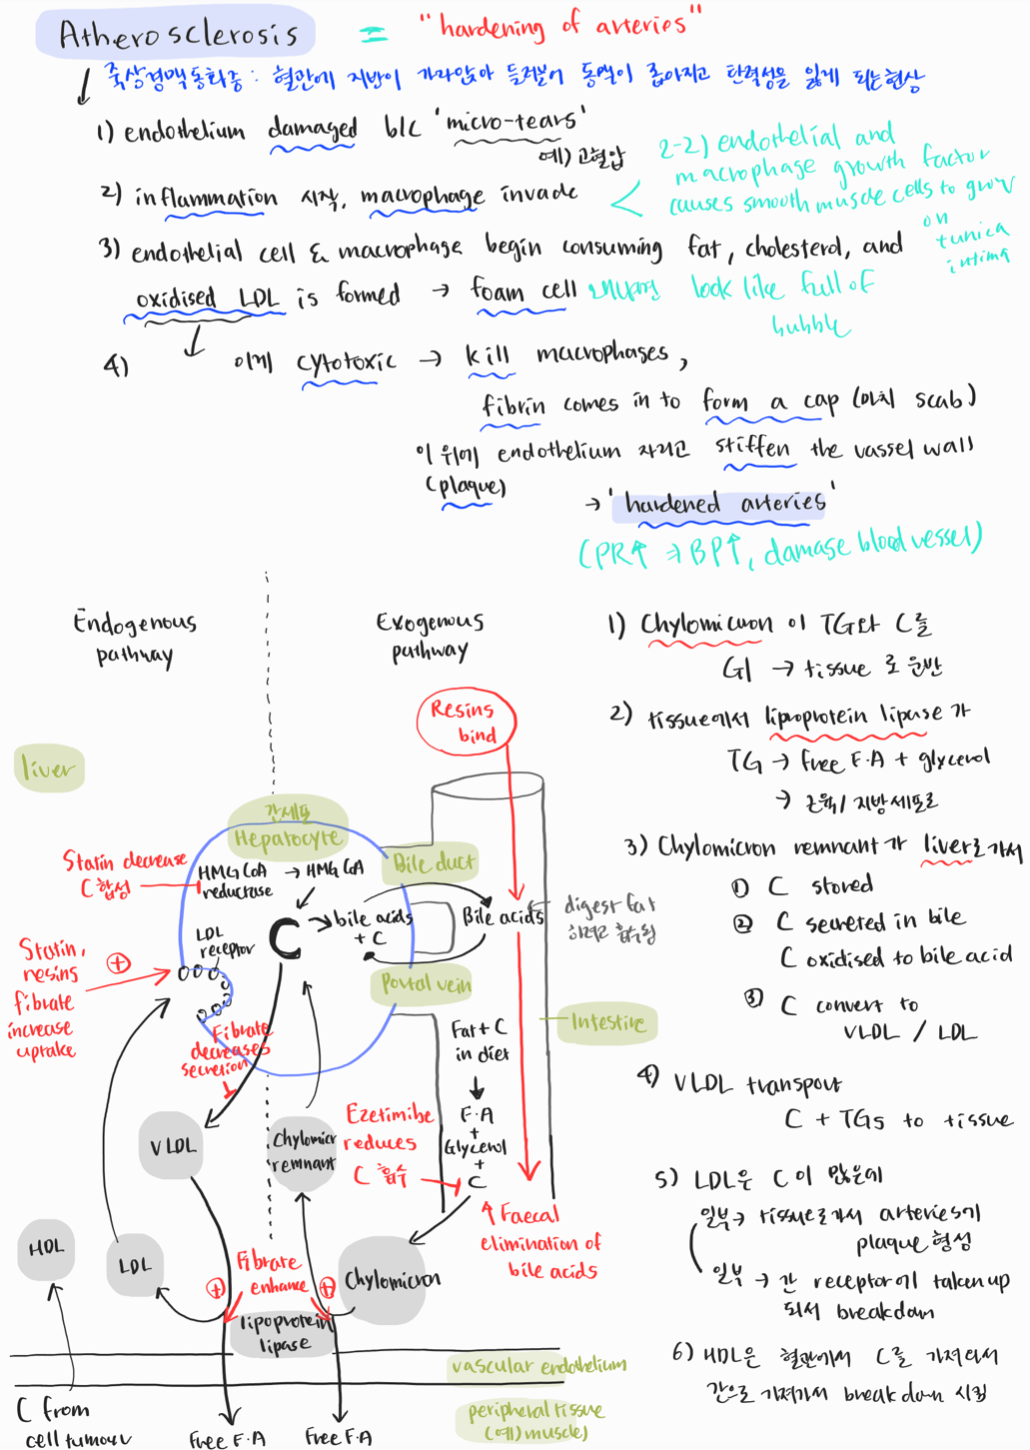 Atherosclerosis = "hardening of arteries"
죽상경맥동화증 : 혈관에 지방이 가라앉아 들러붙어 동맥이 좁아지고 탄력성을 잃게 되는현상
1) endothelium damaged b/c 'micro-tears'
예) 고혈압
2) inflammation 시작, macrophage invade
2-2) endothelial and
macrophage growth factor
causes smooth muscle cells to grow
on
tunica
intima
3) endothelial cell & macrophage begin consuming fat, cholesterol, and
oxidised LDL is formed → foam cell look like full of
bubble
4) 이게 cytotoxic → kill macrophages,
fibrin comes in to form a cap (마치 scab)
이 위에 endothelium 자라고 stiffen the vassel wall
(plaque)
→ 'hardened arteries'
(PR↑ → BP↑, damage blood vessel)
Endogenous
pathway
Exogenous
pathway
Resins
bind
liver
간세포
Hepatocyte
Statin decrease
C 합성
HMG CoA → HMG CoA
reductase
Bile duct
C → bile acids
+ C
Bile acids
digest fat
LDL
receptor
Statin,
resins
fibrate
increase
uptake
+
Portal vein
Intestine
Fibrate
decreases
secretion
Fat + C
in diet
F.A
+
Glycerol
+
C
VLDL
Chylomicr
remnant
Ezetimibe
reduces
C 흡수
↑ Faecal
elimination of
bile acids
HDL
LDL
Fibrate
enhance
+
+
Chylomicron
lipoprotein
lipase
vascular endothelium
C from
cell tumour
Free F.A
Free F.A
peripheral tissue
(예) muscle)
1) Chylomicron 이 TG와 C를
GI → tissue 로 운반
2) tissue에서 lipoprotein lipase가
TG → free F.A + glycerol
→ 근육/지방세포로
3) Chylomicron remnant가 liver로가서
① C stored
② C secreted in bile
C oxidised to bile acid
③ C convert to
VLDL / LDL
4) VLDL transport
C + TGs to tissue
5) LDL은 C이 많은데
일부→ tissue로가서 arteries에
plaque 형성
일부 → 간 receptor에 taken up
되서 breakdown
6) HDL은 혈관에서 C를 가져와서
간으로 가져가서 breakdown 시킴